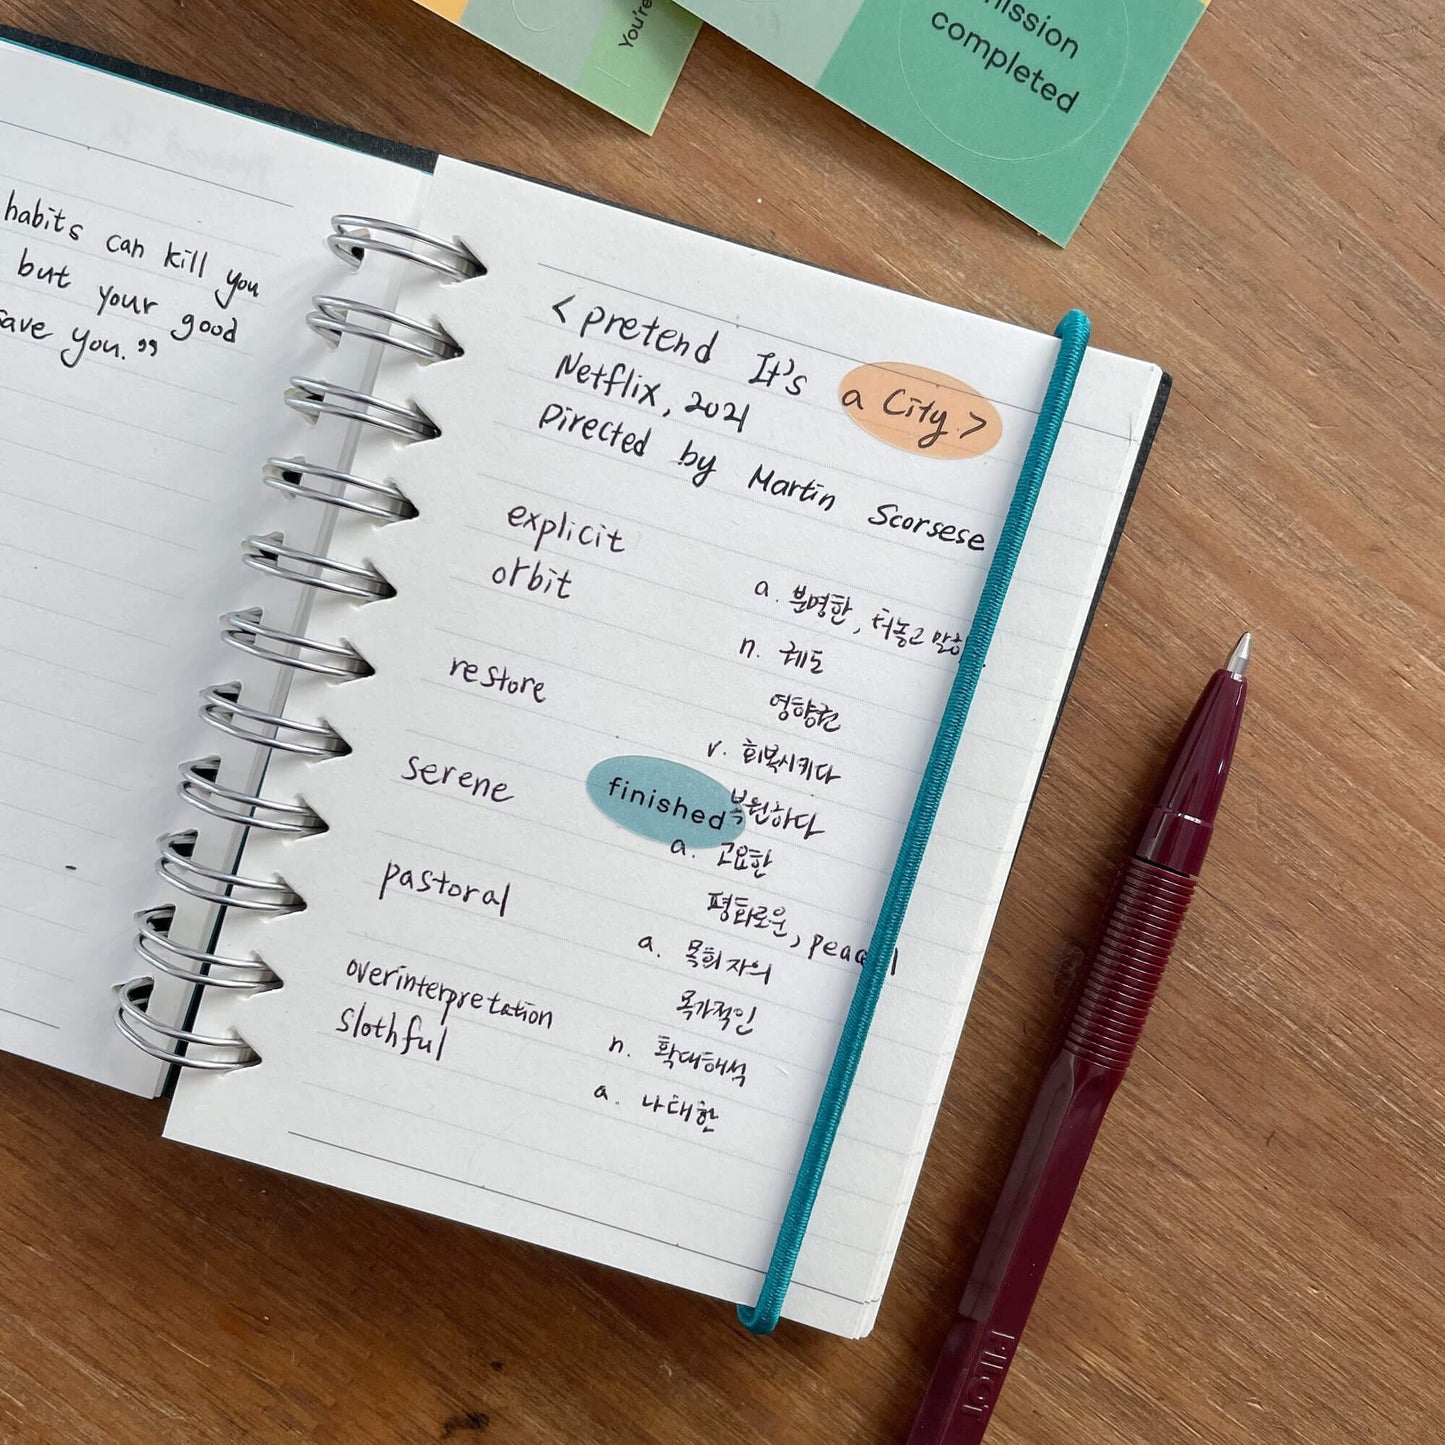 You're
mission
completed
habits can kill you
but your good
save you.”
< pretend It's a City >
Netflix, 2021
Directed by Martin Scorsese
explicit a. 분명한, 터놓고 말하
orbit n. 궤도
영향권
restore v. 회복시키다
복원하다
serene finished a. 고요한
평화로운, peac
pastoral a. 목회자의
목가적인
overinterpretation n. 확대해석
slothful a. 나태한
PILOT